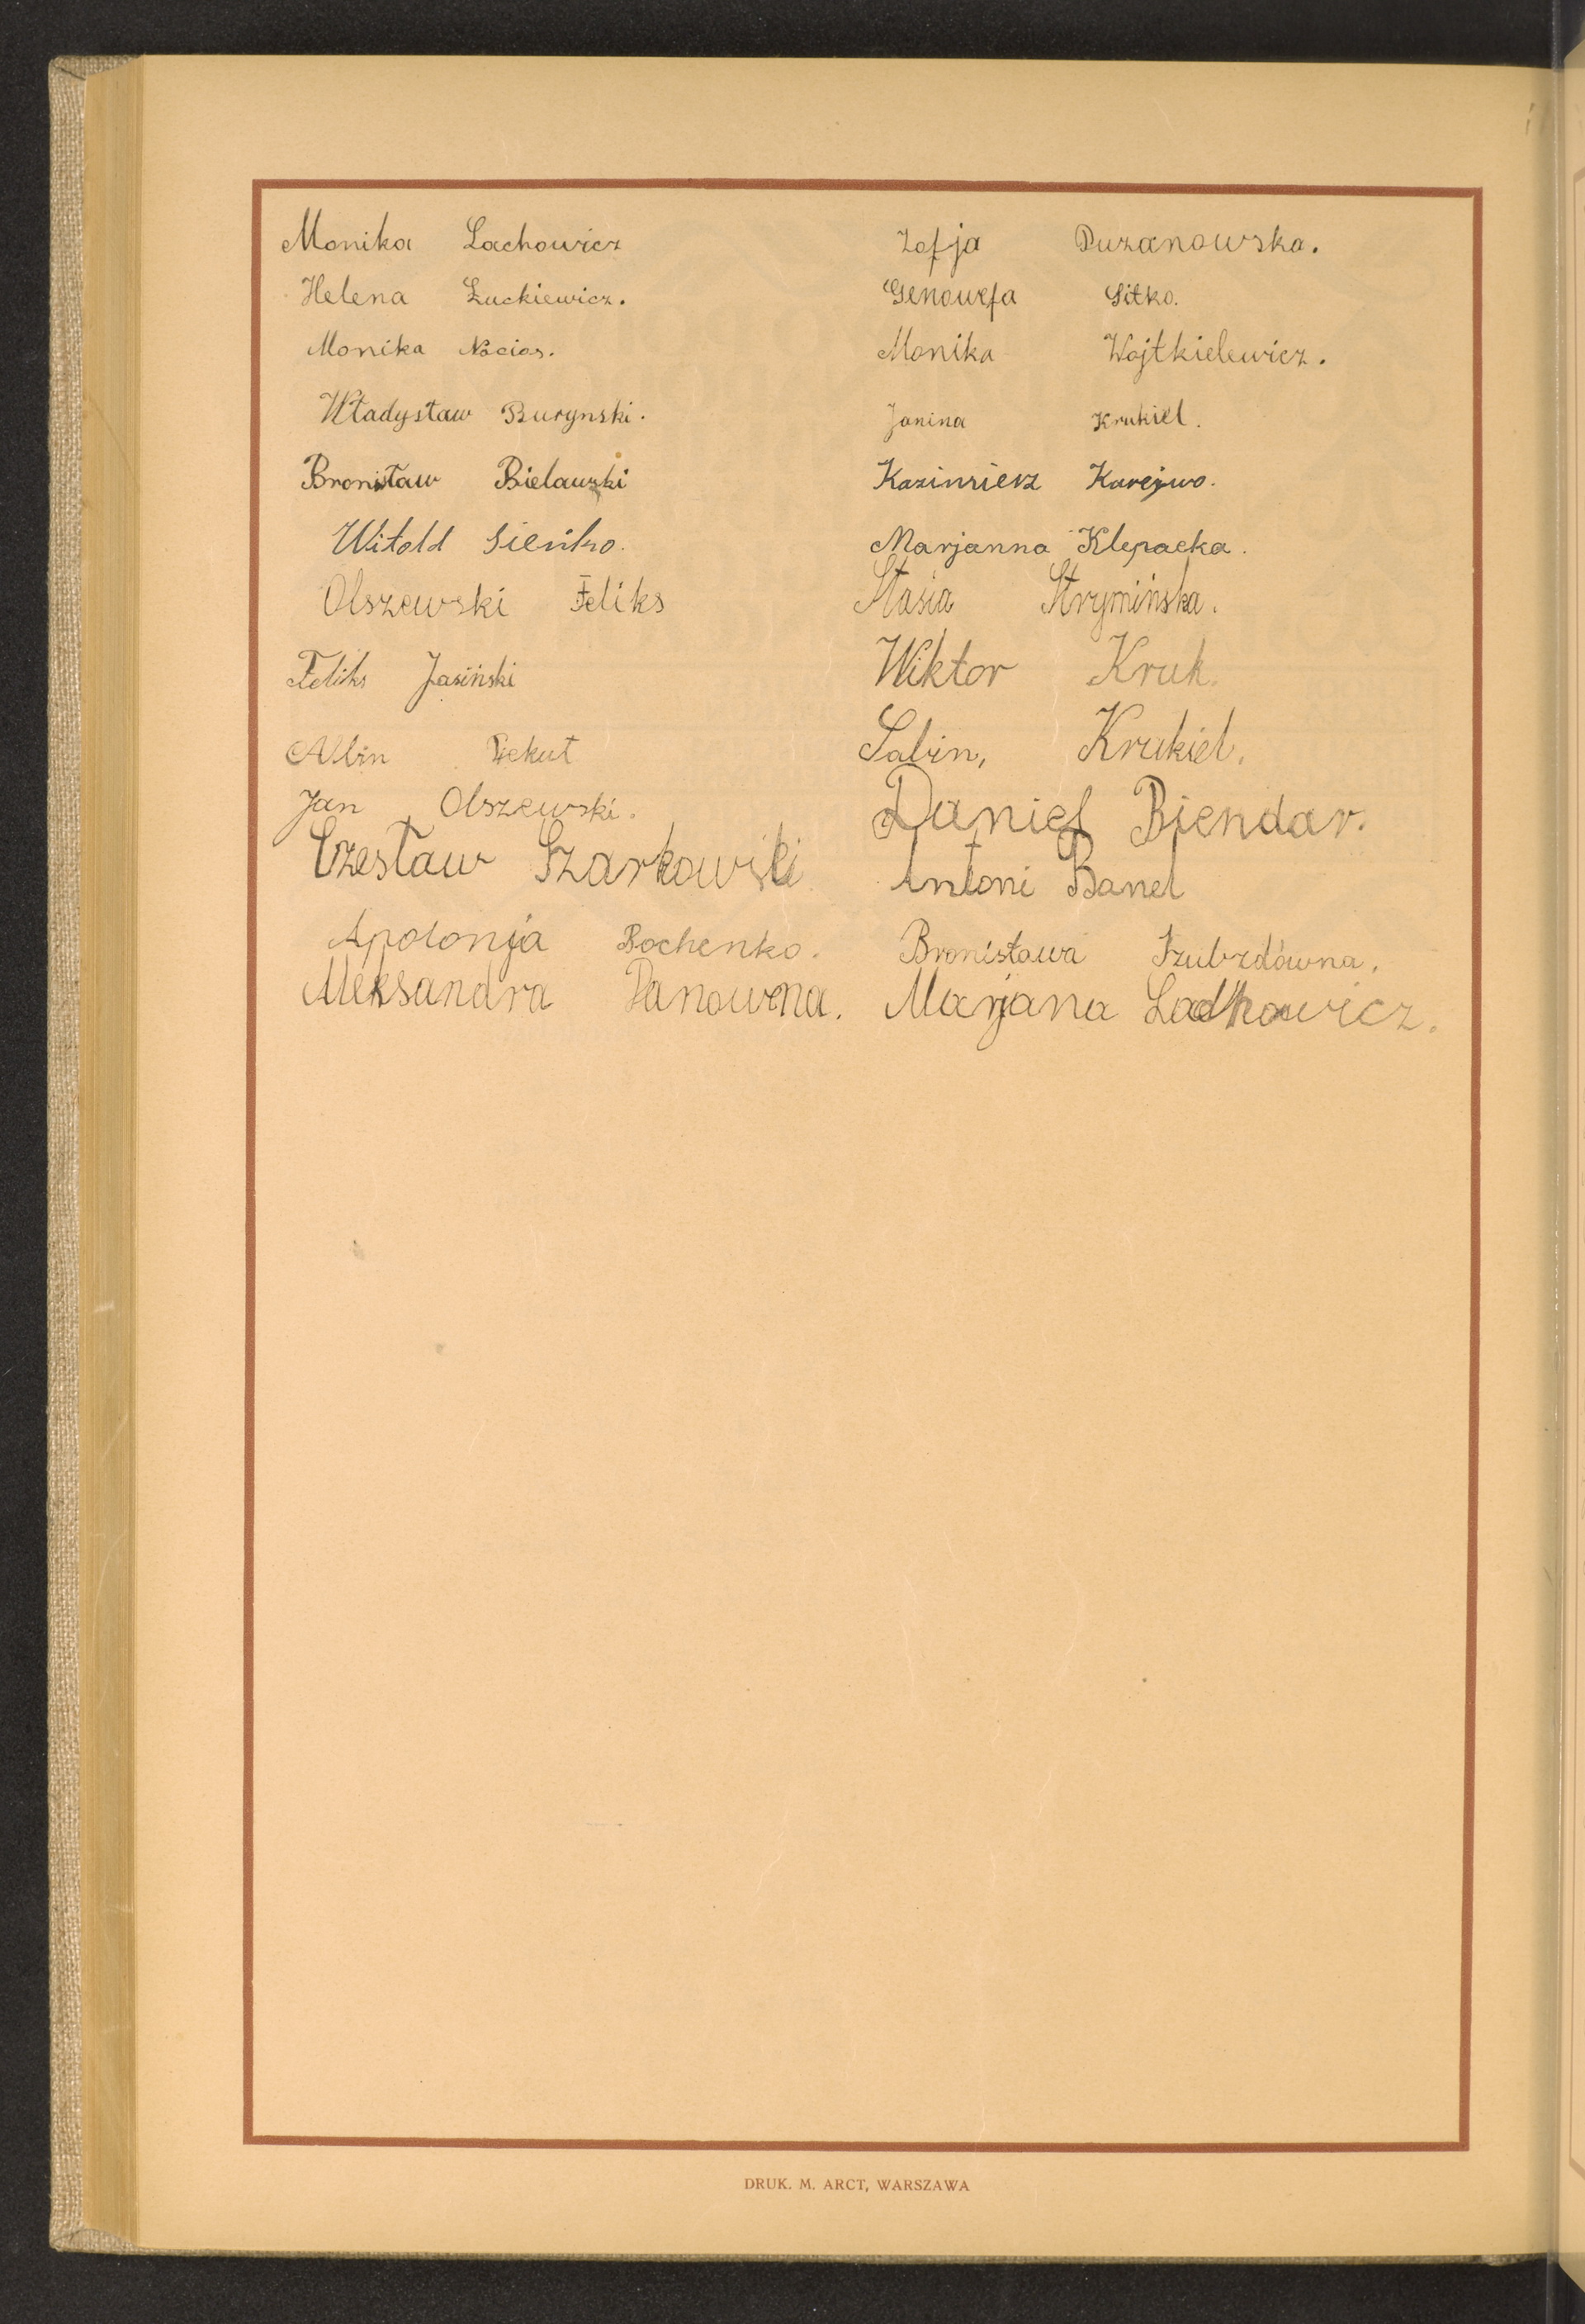 Monika Lachowicz
Helena Łuckiewicz.
Monika Nocios.
Władysław Burynski.
Bronisław Bielawski
Witold Sieńko.
Olszewski Feliks
Feliks Jasiński
Albin Piekut
Jan Olszewski.
Czesław Szarkowski
Apolonja Bochenko.
Aleksandra Panowna.
Zofja Duzanowska.
Genowefa Sitko.
Monika Wojtkielewicz.
Janina Krukiel.
Kazimierz Karejwo.
Marjanna Klepacka.
Stasia Strymińska.
Wiktor Kruk.
Sabin, Krukiel.
Daniel Biendar.
Antoni Banel
Bronisława Szubzdówna.
Marjana Ladhowicz.
DRUK. M. ARCT, WARSZAWA